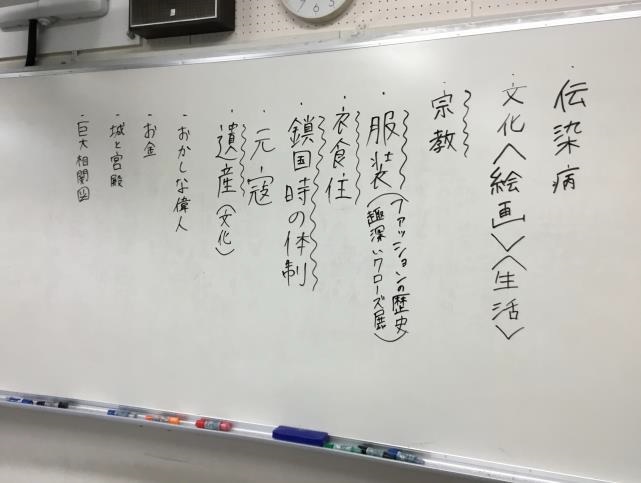 ・伝染病
・文化〈絵画〉〈生活〉
・宗教
・服装(ファッションの歴史
趣深いクローズ展)
・衣食住
・鎖国時の体制
・元寇
・遺産(文化)
・おかしな偉人
・お金
・城と宮殿
・巨大相関図